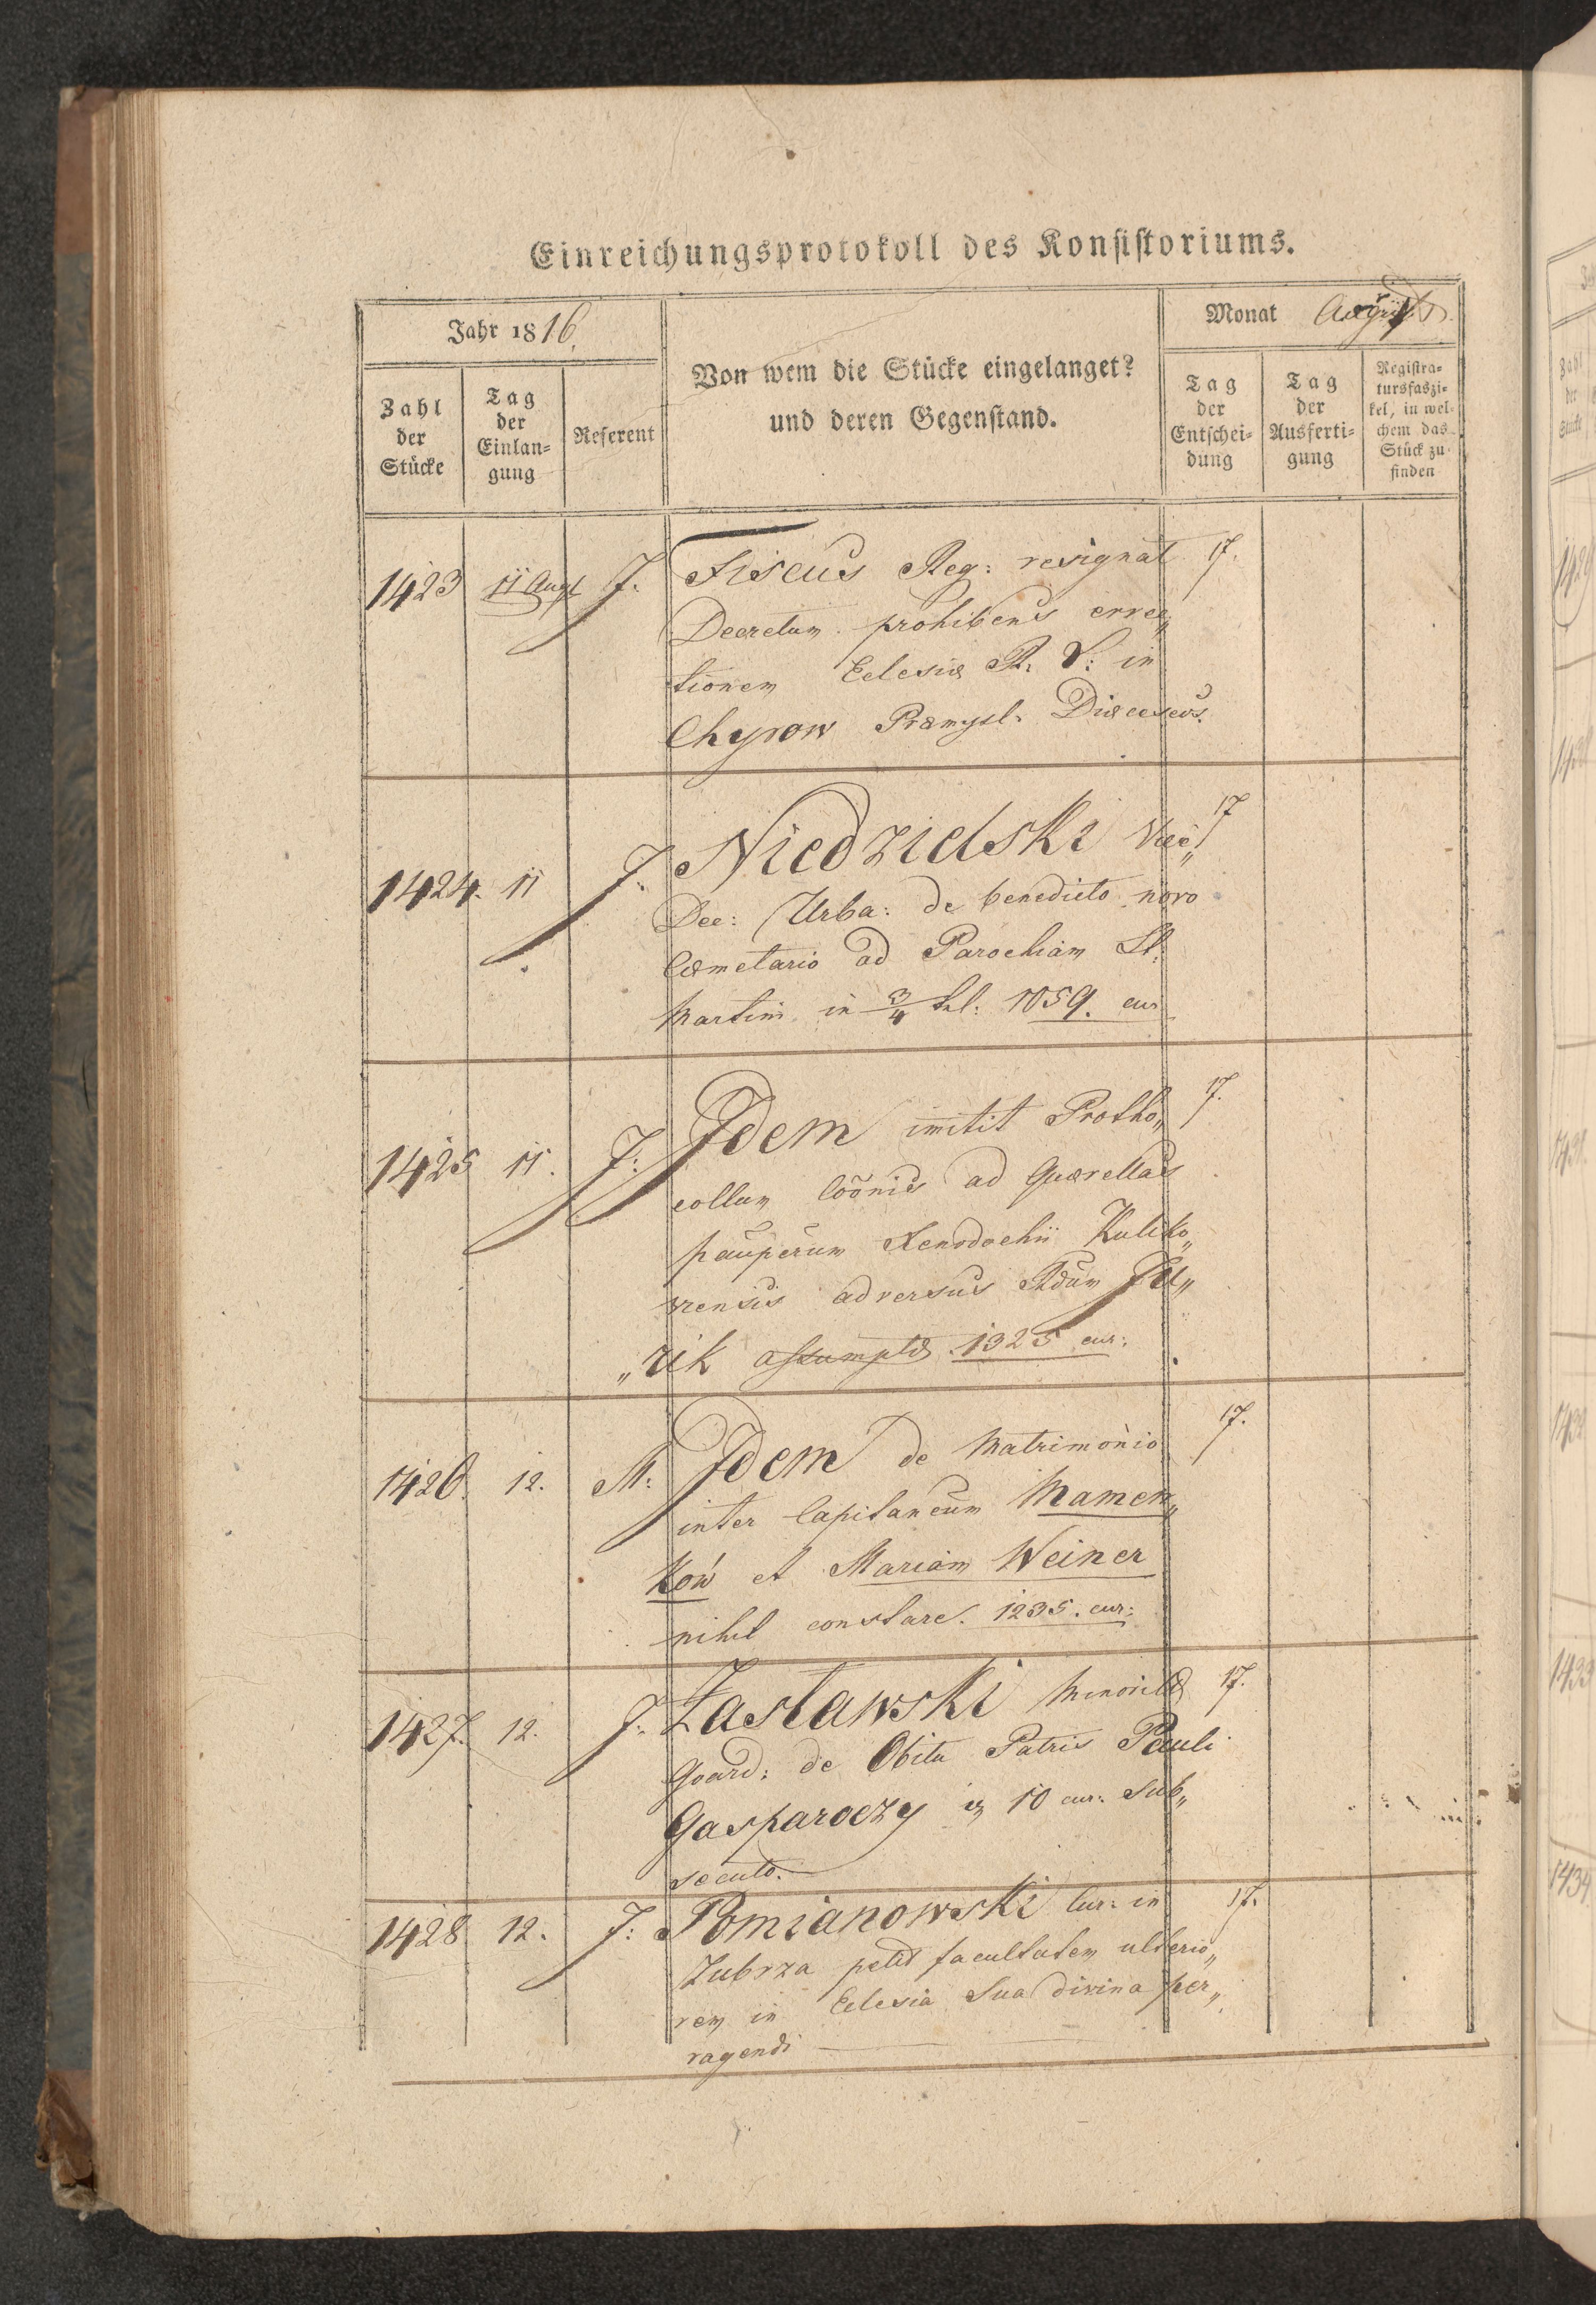 Einreichungsprotokoll des Konsistoriums.
Jahr 1816.
Monat August
Zahl der Stücke
Tag der Einlan=gung
Referent
Von wem die Stücke eingelanget?
und deren Gegenstand.
Tag der Entschei=dung
Tag der Ausferti=gung
Registra=tursfaszi=kel, in wel=chem das Stück zu finden
1423 11 Augt J. Fiscus Reg: resignat 17.
Decretum prohibens errec„
tionem Eclesiæ R. L: in
Chyrow Præmysl. Diæceseos.
1424. 11 J: Niedzielski Vice„ 17
Dec: Urba: de benedicto novo
Cœmetario ad Parochiam St:
Martini in 3/4 hl: 1059. cur
1425 11. J: Idem imitit Protho„ 17.
collum Coõnis ad Quærellas
pauperum Xenodochii Kuliko„
viensis adversus Rdum Ju„
„rik assumptæ 1325 cur:
1426. 12. M: Idem de Matrimonio 17.
inter Capitaneum Mamen„
Kow et Mariam Weiner
nihil constare. 1235. cur:
1427. 12. J. Zasławski Minorita 17.
Goard: de Obitu Patris Pauli
Gasparoczy 10 cur: sub„
secuto.
1428 12. J: Pomianowski Cur: in 17.
Zubrza petit facultatem ulterio„
rem in Eclesia Sua divina per„
ragendi